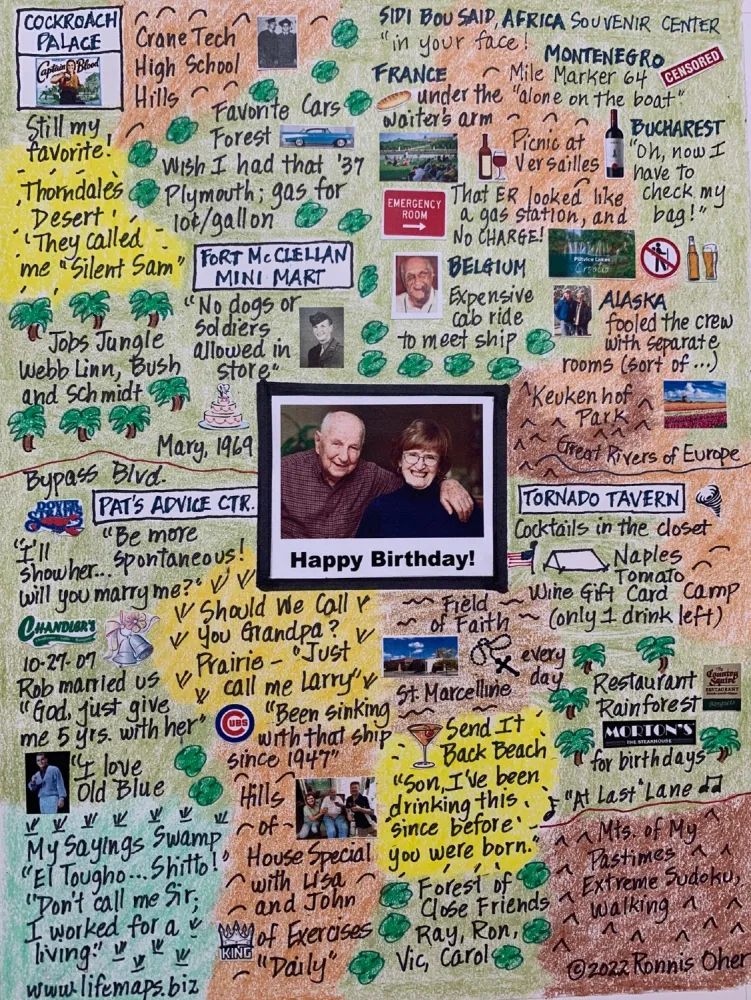 COCKROACH
PALACE
Captain Blood
Still my
favorite!
Crane Tech
High School
Hills
SIDI BOU SAID, AFRICA SOUVENIR CENTER
"in your face!
MONTENEGRO
Mile Marker 64
"alone on the boat"
CENSORED
FRANCE
under the
waiter's arm
Favorite Cars
Forest
Wish I had that '37
Plymouth; gas for
10¢/gallon
Picnic at
Versailles
BUCHAREST
"Oh, now I
have to
check my
bag!"
Thorndale's
Desert
"They called
me "Silent Sam"
EMERGENCY
ROOM
That ER looked like
a gas station, and
NO CHARGE!
Plitvice Lakes
Croatia
FORT McCLELLAN
MINI MART
"No dogs or
soldiers
allowed in
store"
BELGIUM
Expensive
cab ride
to meet ship
ALASKA
fooled the crew
with separate
rooms (sort of...)
Jobs Jungle
Webb Linn, Bush
and Schmidt
Mary, 1969
Keukenhof
Park
Great Rivers of Europe
Bypass Blvd.
DOVER
STRAITS
PAT'S ADVICE CTR.
"Be more
spontaneous!
"I'll
show her...
will you marry me?"
Happy Birthday!
TORNADO TAVERN
Cocktails in the closet
Naples
Tomato
Wine Gift Card Camp
(only 1 drink left)
CHANDLER'S
10-27-07
Rob married us
"God, just give
me 5 yrs. with her"
Should We Call
You Grandpa?
Prairie - "Just
call me Larry"
Field
of Faith
every
day
St. Marcelline
Restaurant
Rainforest
The
Country
Squire
RESTAURANT
MORTON'S
THE STEAKHOUSE
for birthdays
"At Last" Lane
CUBS
"Been sinking
with that ship
since 1947"
"I love
Old Blue
Send It
Back Beach
"Son, I've been
drinking this
since before
you were born."
My Sayings Swamp
"El Tougho...Shitto!"
"Don't call me Sir;
I worked for a
living."
www.lifemaps.biz
Hills
of
House Special
with Lisa
and John
KING
of Exercises
"Daily"
Forest of
Close Friends
Ray, Ron,
Vic, Carol
Mts. of My
Pastimes
Extreme Sudoku,
Walking
©2022 Ronnis Oher